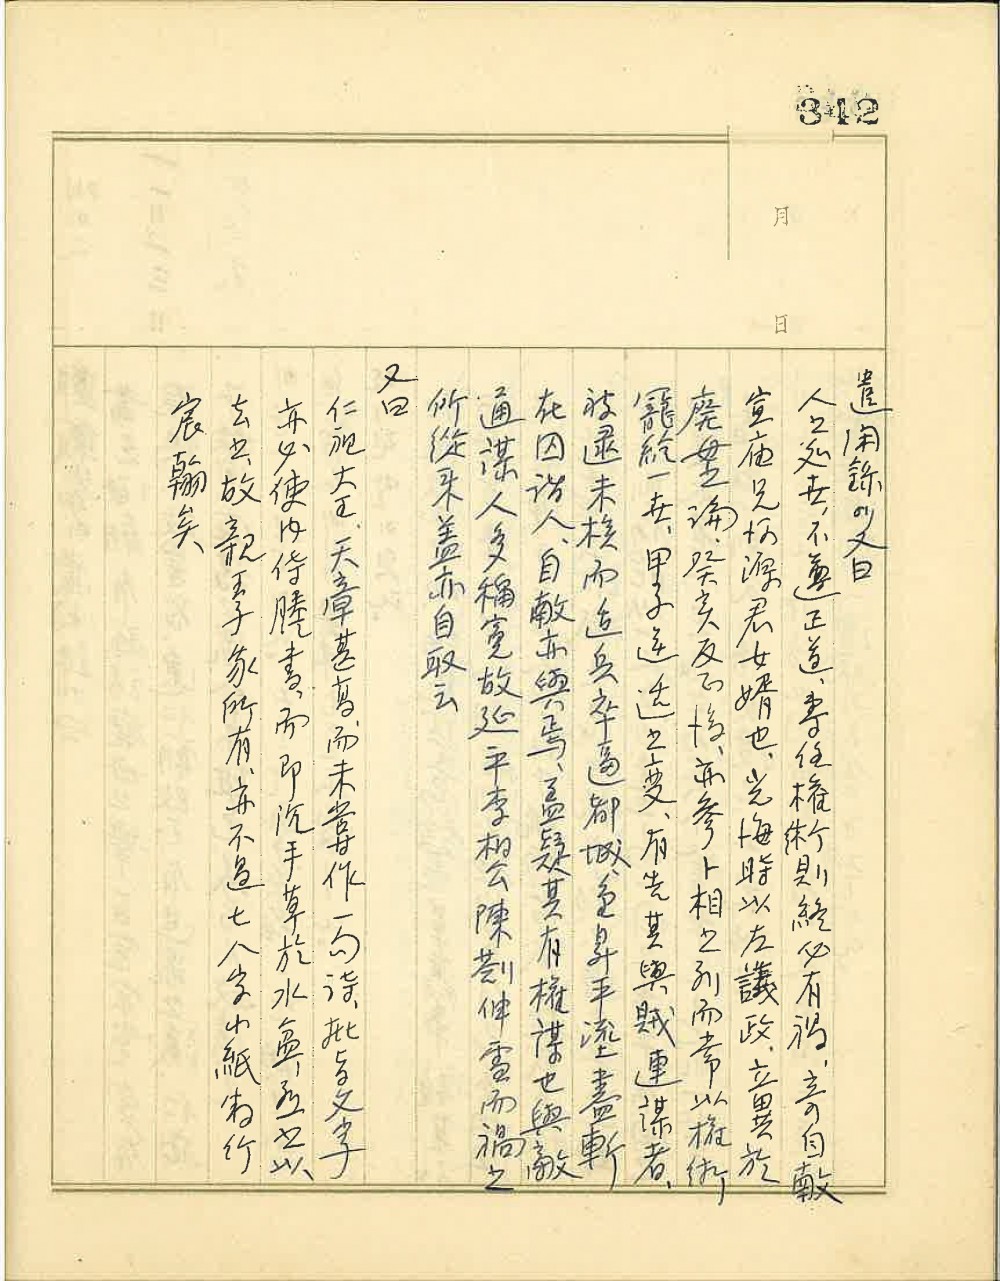 342
月
日
遣闲錄의又曰
人之處世、不遵正道、專任權術則終必有禍、奇自獻
宣庙兄河源君女婿也、光海時以左議政、立異於
廢母論、癸亥反正後、亦參卜相之列而常以權術
籠絡一世、甲子逆适之變、有告其與賊連謀者、
被逮未核而适兵卒逼都城、金昇平瑬盡斬
在囚諸人、自獻亦與焉、盖疑其有權謀也與獻
通謀人多稱寃故延平李相公陳劄伸雪而禍之
所從来盖亦自取云
又曰
仁祖大王、天章甚高、而未嘗作一句詩、批答文字
亦必使內侍謄書、而即沉手草於水盆、
去之、故親王子家所有、亦不過七八字小紙数行
宸翰矣、